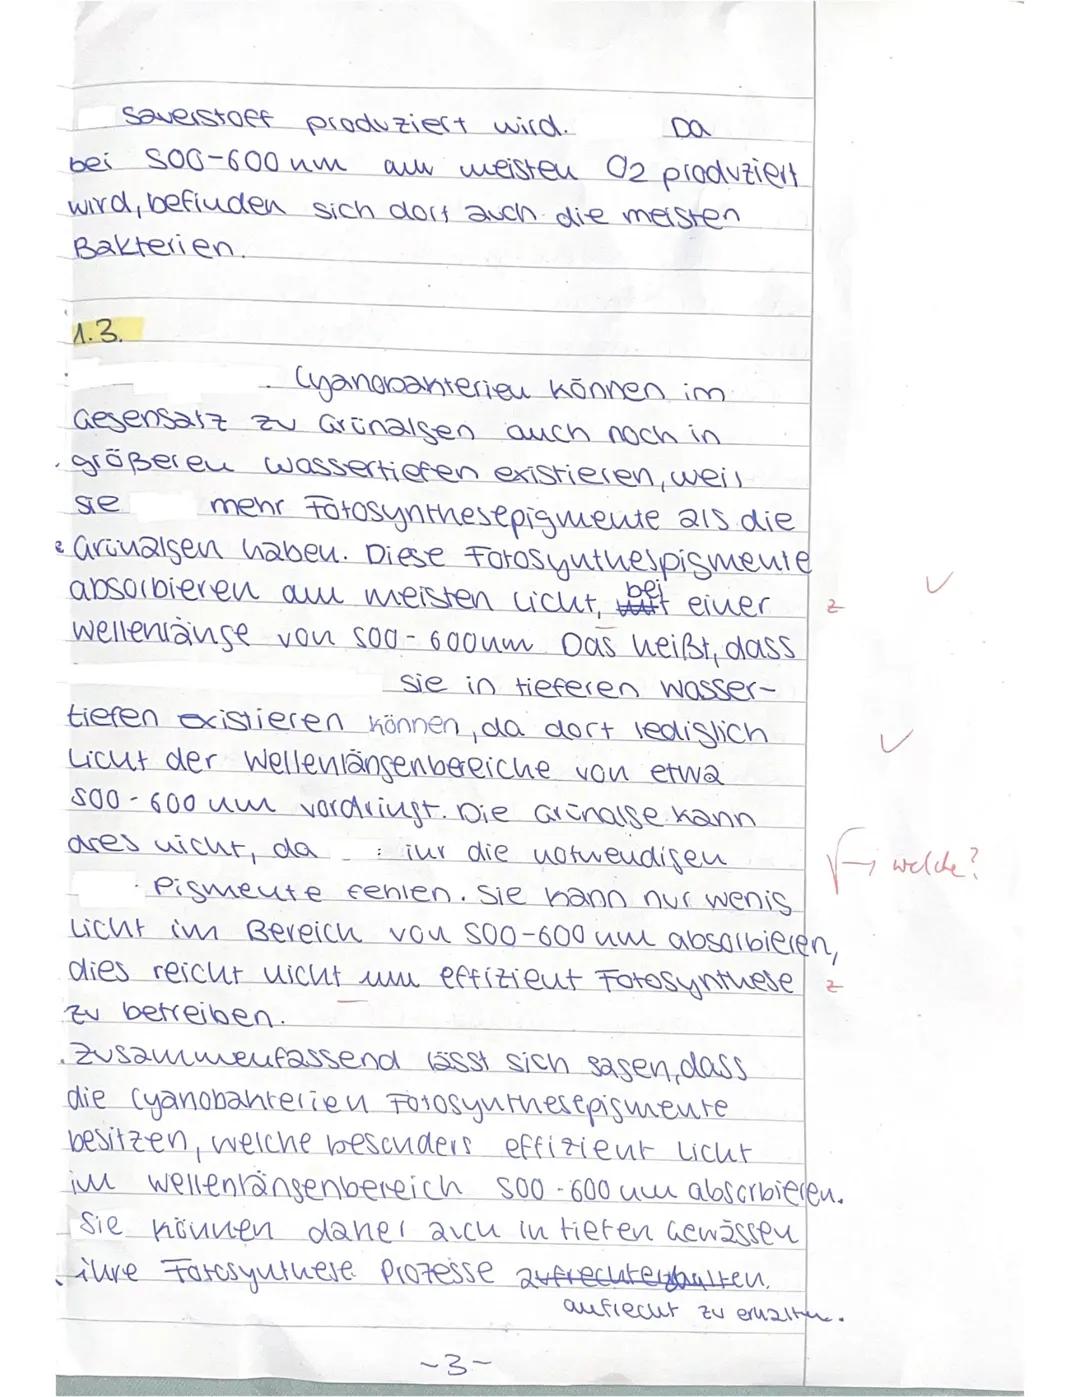 Sauerstoff produziert wird. Da
bei 500-600 nm am meisten O2 produziert
wird, befinden sich dort auch die meisten
Bakterien.
1.3.
Cyanobakterien können im
Gegensatz zu Grünalgen auch noch in
größeren Wassertiefen existieren, weil
sie mehr Fotosynthesepigmente als die
Grünalgen haben. Diese Fotosynthespigmente
absorbieren am meisten Licht, bei einer z
Wellenlänge von 500-600nm Das heißt, dass
sie in tieferen Wasser-
tiefen existieren können, da dort lediglich
Licht der Wellenlängenbereiche von etwa
500-600 nm vordringt. Die Grünalge kann
dies nicht, da ihr die notwendigen welche?
Pigmente fehlen. Sie kann nur wenig
Licht im Bereich von 500-600 nm absorbieren,
dies reicht nicht um effizient Fotosynthese z
zu betreiben.
Zusammenfassend lässt sich sagen, dass
die Cyanobakterien Fotosynthesepigmente
besitzen, welche besonders effizient Licht
im Wellenlängenbereich 500-600 nm absorbieren.
Sie können daher auch in tiefen Gewässen
ihre Fotosynthese Prozesse aufrechterhalten.
aufrecht zu erhalten.
-3-